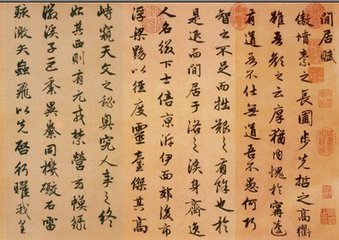 閒居賦
傲墳素之長圃步先哲之高衢
雖吾顏之云厚猶内愧於甯蘧
有道吾不仕無道吾不愚何巧
智之不足而拙艱之有餘也於
是退而閒居于洛之涘身齊逸
人名綴下士倍京泝伊面郊後市
浮梁黝以徑度靈臺傑其高
峙窺天文之秘奧究人事之終
始其西則有元戎禁營玄幙綠
徽谿子巨黍異絭同機礮石雷
駭激矢蝱飛以先啓行曜我皇